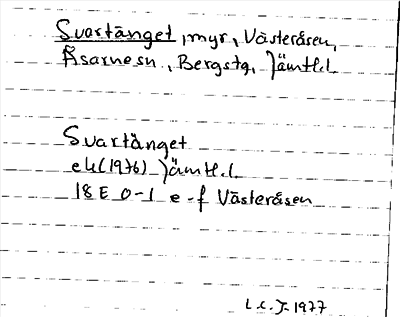 Svartänget, myr, Västeråsen,
Åsarne sn, Bergs tg, Jämtl.l.
Svartänget
ek (1976) Jämtl.l.
18E 0-1 e-f Västeråsen
L.E.J. 1977